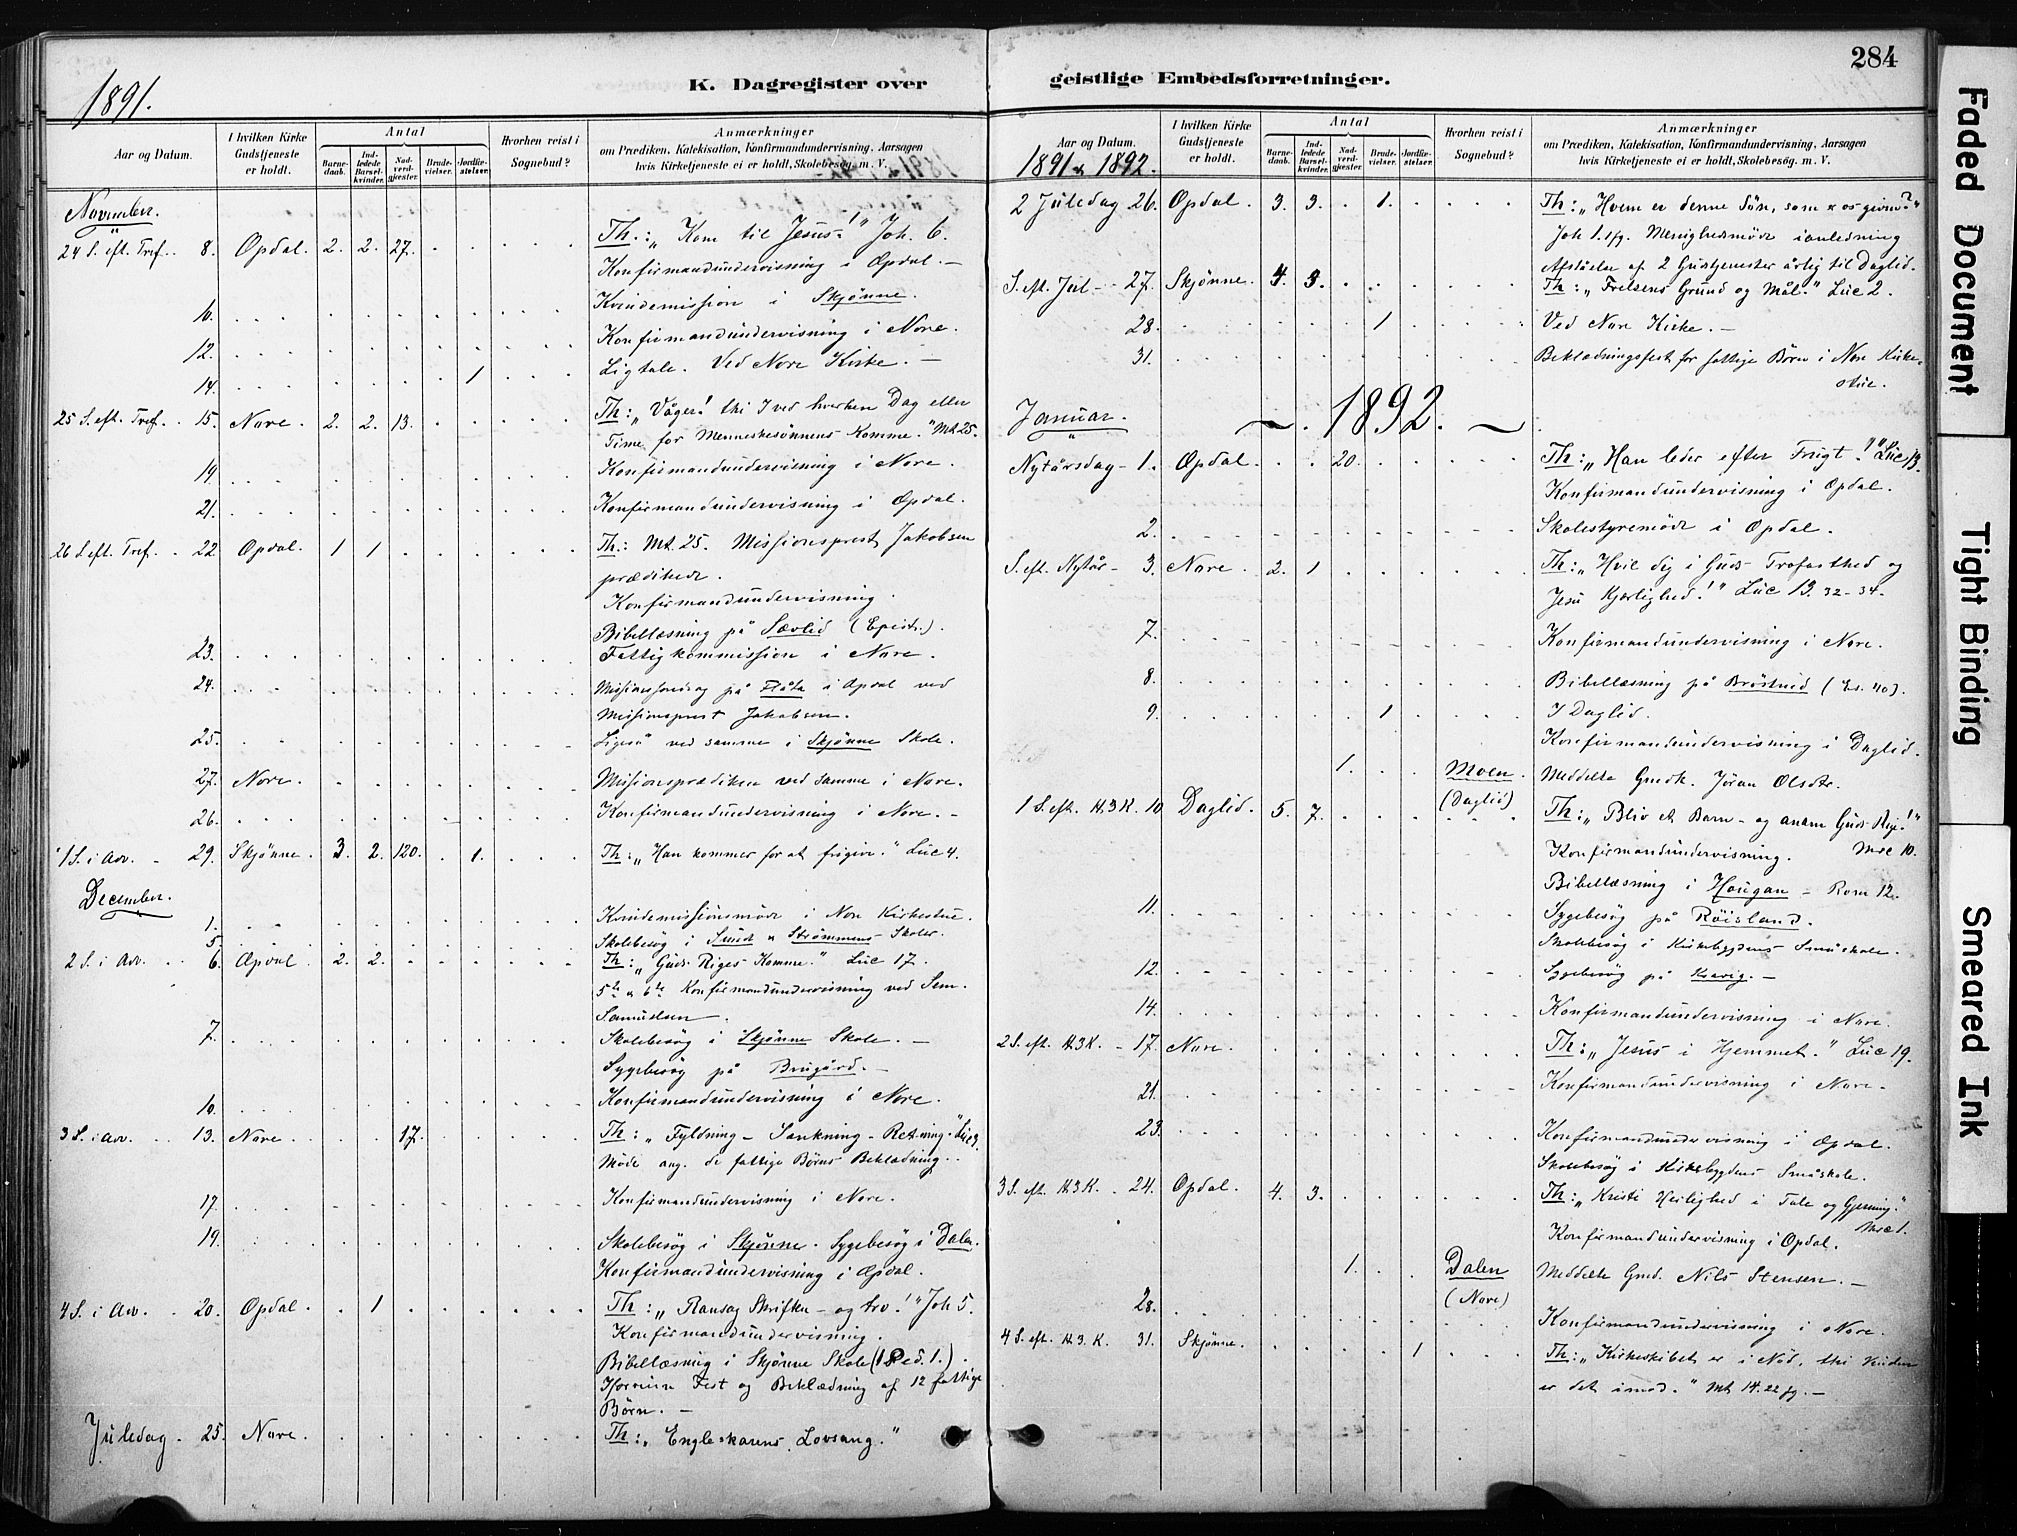 284
1891.
K. Dagregister over geistlige Embedsforretninger.
Aar og Datum.
I hvilken Kirke Gudstjeneste er holdt.
Antal
Barnedaab.
Indledede Barselkvinder.
Nadverdgjester.
Brudevielser.
Jordfæstelser.
Hvorhen reist i Sognebud?
Anmærkninger
om Prædiken, Katekisation, Konfirmandundervisning, Aarsagen
hvis Kirketjeneste ei er holdt, Skolebesøg. m. V.
November.
24 S. eft. Tref. 8. Opdal. 2. 2. 27. Th.: „Kom til Jesus!" Joh. 6.
Konfirmandundervisning i Opdal. –
Kvindemission i Skjønne.
10. Konfirmandundervisning i Nore.
12. Ligtale. Ved Nore Kirke. –
14. 1
25 S. eft. Tref. 15. Nore. 2. 2. 13. Th: „Våger! thi I ved hverken Dag eller
Time for Menneskesønnens Komme." Mt. 25.
19. Konfirmandundervisning i Nore.
21. Konfirmandundervisning i Opdal.
26 S. eft. Tref. 22 Opdal. 1 1 Th: Mt. 25. Missionsprest Jakobsen
prædikede.
Konfirmandundervisning.
Bibellæsning på Sævlid
23. Fattigkommission i Nore.
24. på Flåta i Opdal ved
Missionsprest Jakobsen.
25. Ligeså ved samme i Skjønne Skole.
27. Nore. Missionsprædiken ved samme i Nore.
26. Konfirmandundervisning i Nore. –
1 S. i Adv. 29. Skjønne. 3. 2. 120. 1. Th: „Han kommer for at frigive." Luc 4.
December.
1. Kvindemissionsmøde i Nore Kirkestue.
5. Skolebesøg i Sund & Strømmens Skoler.
2 S. i Adv. 6. Opdal. 2. 2. Th: „Guds Riges Komme." Luc 17.
5te & 6te Konfirmandundervisning ved Sem.
Samuelsen.
7. Skolebesøg i Skjønne Skole. –
Sygebesøg på Brugård. –
10. Konfirmandundervisning i Nore.
3 S. i Adv. 13. Nore. 17. Th: „Fyldning – Sænkning – Retning" Luc 3.
Møde ang. de fattige Børns Beklædning.
17. Konfirmandundervisning i Nore.
19. Skolebesøg i Skjønne. Sygebesøg i Dalen.
Konfirmandundervisning i Opdal.
4 S. i Adv. 20. Opdal. 1 Th: „Ransag Skriften – og tro!" Joh 5.
Konfirmandundervisning.
Bibellæsning i Skjønne Skole (1 Ped. 1.)
Fest og Beklædning af 12 fattige
Børn. –
Juledag. 25. Nore. Th: „Engleskarens Lovsang."
Aar og Datum.
1891 & 1892.
I hvilken Kirke Gudstjeneste er holdt.
Antal
Barnedaab.
Indledede Barselkvinder.
Nadverdgjester.
Brudevielser.
Jordfæstelser.
Hvorhen reist i Sognebud?
Anmærkninger
om Prædiken, Katekisation, Konfirmandundervisning, Aarsagen
hvis Kirketjeneste ei er holdt, Skolebesøg. m. V.
2 Juledag 26. Opdal. 3. 3. 1. Th: „Hvem er denne Søn, som er os given?"
Joh 1. 1fg. Menighedsmøde i anledning
Afståelse af 2 Gustjenester årlig til Daglid.
S. eft. Jul 27. Skjønne. 4. 3. Th: „Frelsens Grund og Mål." Luc 2.
28. 1 Ved Nore Kirke. –
31. Beklædningsfest for fattige Børn i Nore Kirke-
stue.
1892.
Januar.
Nytårsdag – 1. Opdal. 20. Th: „Han leder efter Frugt!" Luc 13.
Konfirmandundervisning i Opdal.
2. Skolestyremøde i Opdal.
S. eft. Nytår – 3. Nore. 2. 1 Th: „Hvil dig i Guds Trofasthed og
Jesu Kjærlighed!" Luc 13. 32-34.
7. Konfirmandundervisning i Nore.
8. Bibellæsning på (Es. 40).
9. 1 I Daglid.
Konfirmandundervisning i Daglid.
1. Moen. (Daglid) Meddelte Gmdk. Jøran Olsdtr.
1 S. eft. H.3.K. 10 Daglid. 5. 7. Th: „Bliv et Barn – og anam Guds Rige!"
Mrc 10.
Konfirmandundervisning.
Bibellæsning i Hougan – Rom 12.
11. Sygebesøg på Røisland.
Skolebesøg i Kirkebygdens Småskole.
12. Sygebesøg på Kravig. –
14. Konfirmandundervisning i Nore.
2 S. eft. H.3.K. – 17. Nore. Th: „Jesus i Hjemmet." Luc 19.
21. Konfirmandundervisning i Nore.
23. Konfirmandundervisning i Opdal.
Skolebesøg i Kirkebygdens Småskole.
3 S. eft. H.3.K. 24. Opdal. 4. 3. Th: „Kristi Herlighed i Tale og Gjerning."
Mrc 1.
Konfirmandundervisning i Opdal.
1. Dalen (Nore) Meddelte Gmd. Nils Stensen. –
28. Konfirmandundervisning i Nore.
4 S. eft. H.3.K. 31. Skjønne. 1 Th: „Kirkeskibet er i Nød, thi Vinden
er det imod." Mt 14. 22 fg. –
Faded Document
Tight Binding
Smeared Ink